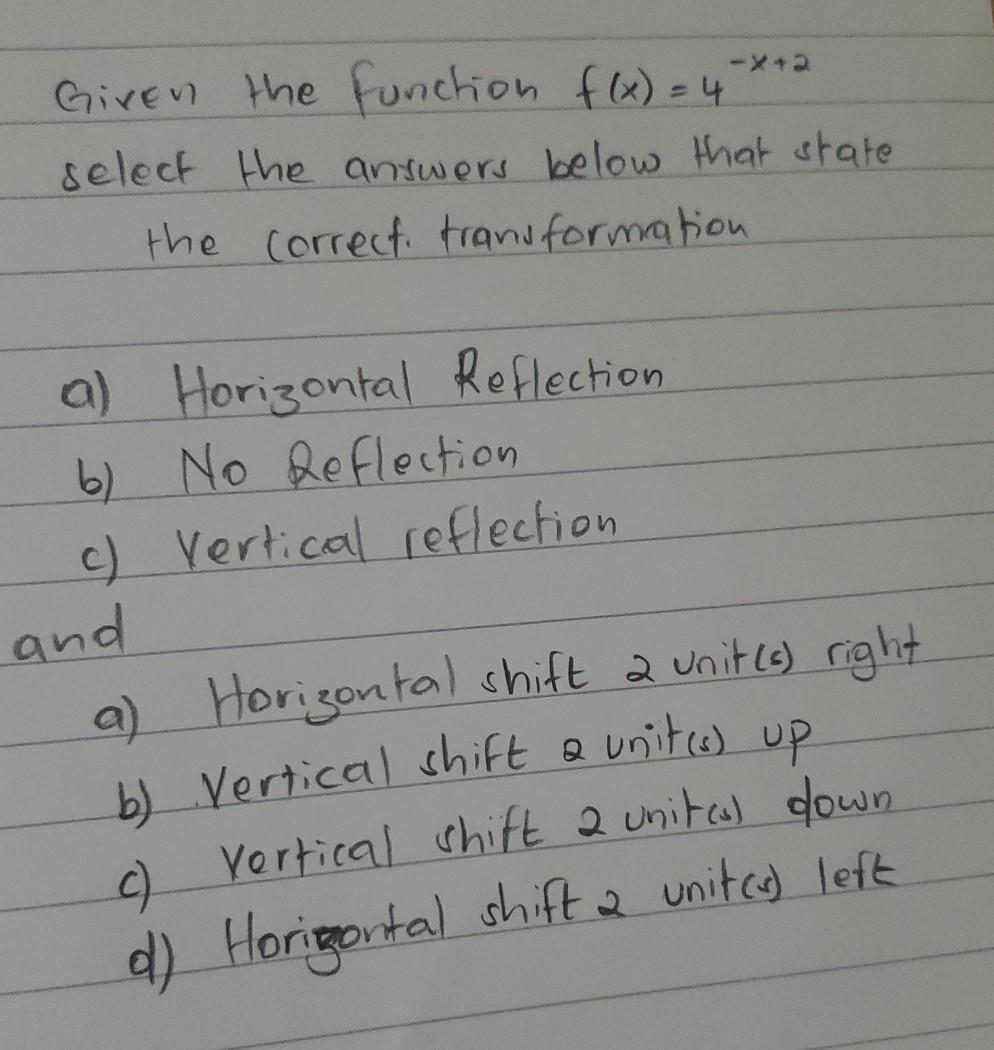 Given the function f(x) = 4^{-x+2}
select the answers below that state
the correct. transformation
a) Horizontal Reflection
b) No Reflection
c) Vertical reflection
and
a) Horizontal shift 2 unit(s) right
b) Vertical shift 2 unit(s) up
c) Vertical shift 2 unit(s) down
d) Horizontal shift 2 unit(s) left